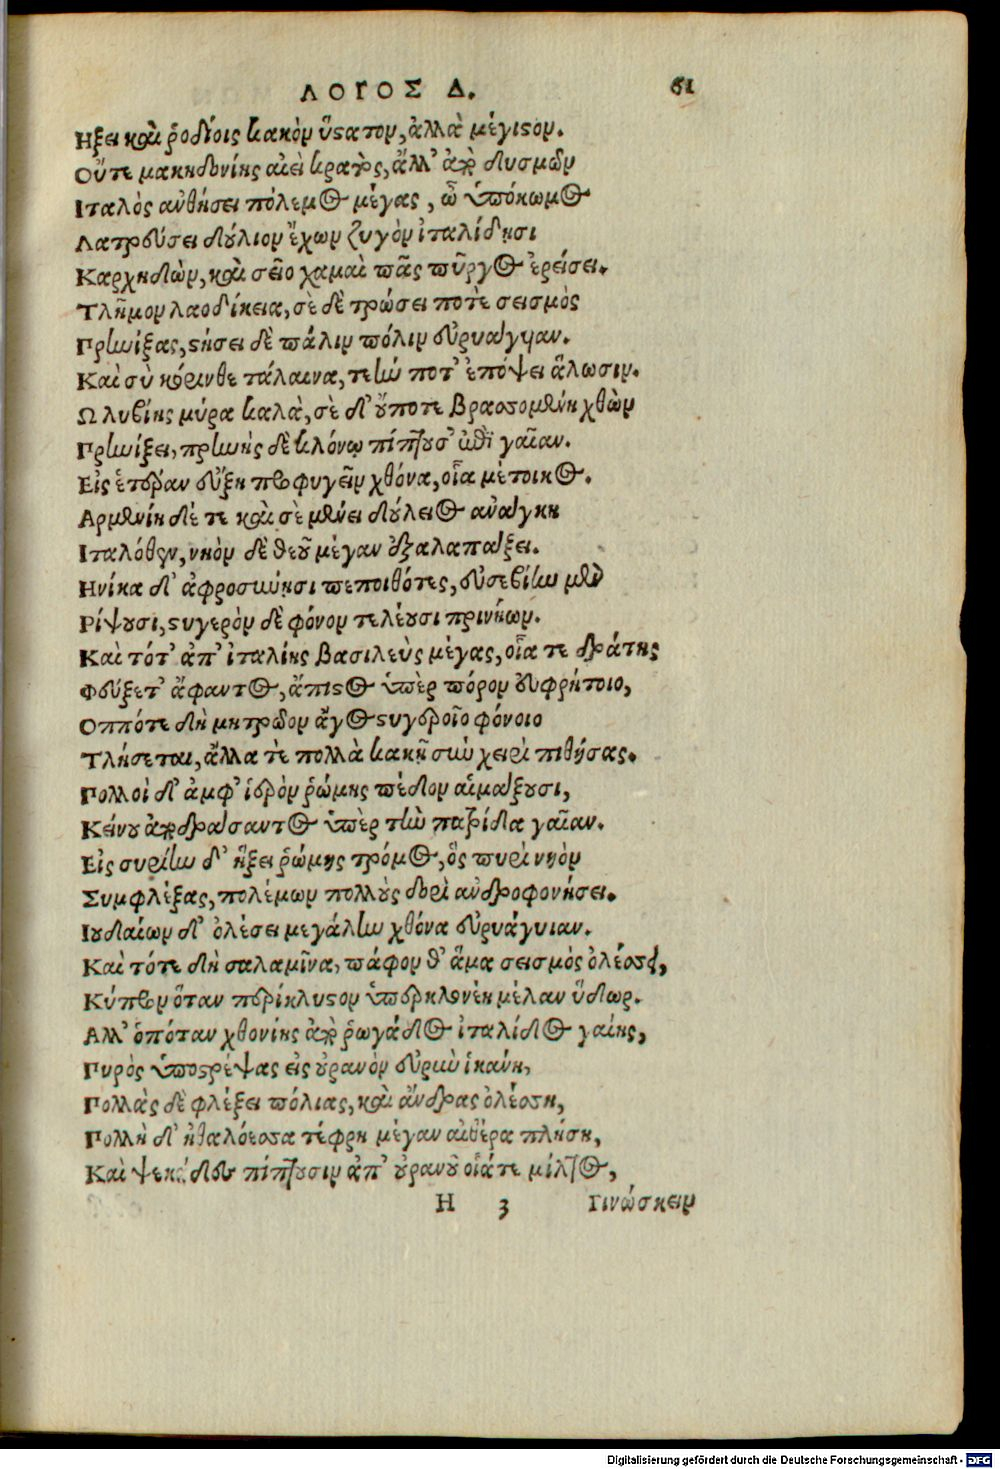 ΛΟΓΟΣ Δ. 61
Ηξει καὶ ῥοδίοις κακὸν ὕστατον, ἀλλὰ μέγιστον.
Οὔτε μακηδονίης αἰεὶ κρατος, ἄλλ' ἀπὸ δυσμῶν
Ιταλὸς ανθήσει πόλεμος μέγας, ὧ ὑπόκωμος
Λατρεύσει δούλιον ἔχων ζυγὸν ἰταλίδησι
Καρχηδὼν, καὶ σεῖο χαμαὶ πᾶς πῦργος ἐρείσει.
Τλῆμον λαοδίκεια, σὲ δὲ τρώσει ποτὲ σεισμὸς
Πρηνίξας, στήσει δὲ πάλιν πόλιν εὐρυαγυιαν.
Καὶ σὺ κόρινθε τάλαινα, τεήν ποτ' ἐπόψει ἅλωσιν.
Ω λυβίης μύρα καλὰ, σὲ δ' οὔποτε βρασσομένη χθὼν
Πρηνίξει, πρηνὴς δὲ κλόνῳ πίπτουσ' ἐπὶ γαῖαν.
Εἰς ἑτέραν εὔξη προφυγεῖν χθόνα, οἷα μέτοικος.
Αρμενίη δέ τε καὶ σὲ μένει δούλειος ανάγκη
Ιταλόθεν, νηὸν δὲ θεοῦ μέγαν ἐξαλαπάξει.
Ηνίκα δ' ἀφροσύνησι πεποιθότες, εὐσεβίην μὲν
Ρίψουσι, στυγερὸν δὲ φόνον τελέουσι πρινήων.
Καὶ τότ' ἀπ' ἰταλίης βασιλεὺς μέγας, οἷα τε δράτης
Φεύξετ' ἄφαντος, ἄπιστος ὑπὲρ πόρον ευφρήτοιο,
Οππότε δὴ μητρῶον ἄγος στυγεροῖο φόνοιο
Τλήσεται, ἄλλα τὲ πολλὰ κακῇ σὺν χειρὶ πιθήσας.
Πολλοὶ δ' ἀμφ' ἱερὸν ῥώμης πέδον αἱμάξουσι,
Κείνου ἀποδράσαντος ὑπὲρ τὴν πατρίδα γαῖαν.
Εἰς συρίην δ' ἥξει ῥώμης τρόμος, ὃς πυρὶ νηὸν
Συμφλέξας, πολέμων πολλοὺς δορὶ ανδροφονήσει.
Ιουδαίων δ' ὀλέσει μεγάλην χθόνα εὐρυάγυιαν.
Καὶ τότε δὴ σαλαμῖνα, πάφον θ' ἅμα σεισμὸς ὀλέσσει,
Κύπρον ὅταν περίκλυστον ὑπερκλονέῃ μέλαν ὕδωρ.
Αλλ' ὁπόταν χθονίης ἀπὸ ῥωγάδος ἰταλίδος γαίης,
Πυρὸς ὑποστρέψας εἰς οὐρανὸν εὐρὺν ἱκανη,
Πολλὰς δὲ φλέξει πόλιας, καὶ ἄνδρας ὀλέσση,
Πολλὴ δ' ἠθαλόεσσα τέφρη μέγαν αἰθέρα πλήση,
Καὶ ψεκάδες πίπτουσιν ἀπ' οὐρανοῦ οἷάτε μίλτος,
Η 3 Γινώσκειν
Digitalisierung gefördert durch die Deutsche Forschungsgemeinschaft - DFG